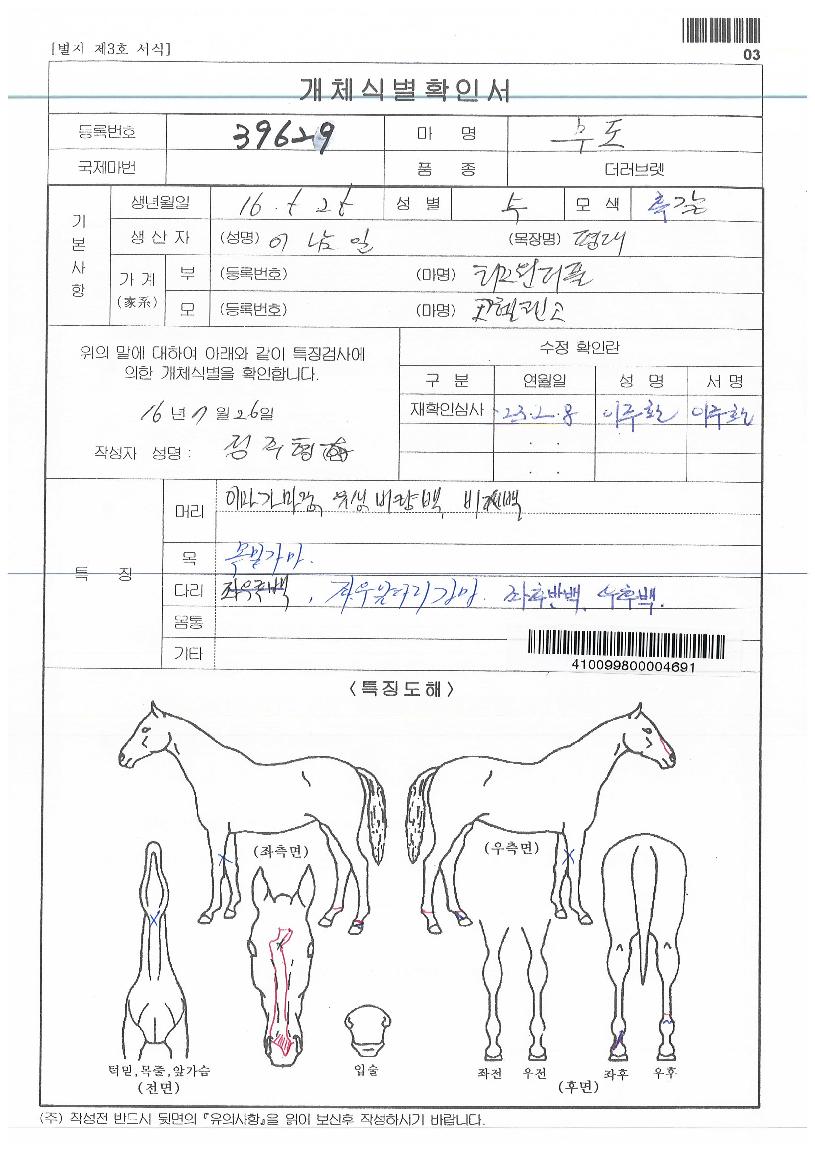 [별지 제3호 서식]
03
개체식별확인서
등록번호 39629 마 명
국제마번 품 종 더러브렛
기본사항
생년월일 16. 성 별 수 모 색 흑갈
생 산 자 (성명) 이 남 일 (목장명) 평대
가 계 (家系) 부 (등록번호) (마명)
모 (등록번호) (마명)
위의 말에 대하여 아래와 같이 특징검사에
의한 개체식별을 확인합니다.
16 년 7 월 26 일
작성자 성명 :
수정 확인란
구 분 연월일 성 명 서 명
재확인심사 23. 2. 8
특 징
머리 이마가마
목 목밑가마.
다리 좌후반백, 우후백.
몸통
기타
410099800004691
<특징도해>
(좌측면) (우측면)
턱밑,목줄,앞가슴
(전면)
입술
좌전 우전 좌후 우후
(후면)
(주) 작성전 반드시 뒷면의 『유의사항』을 읽어 보신후 작성하시기 바랍니다.